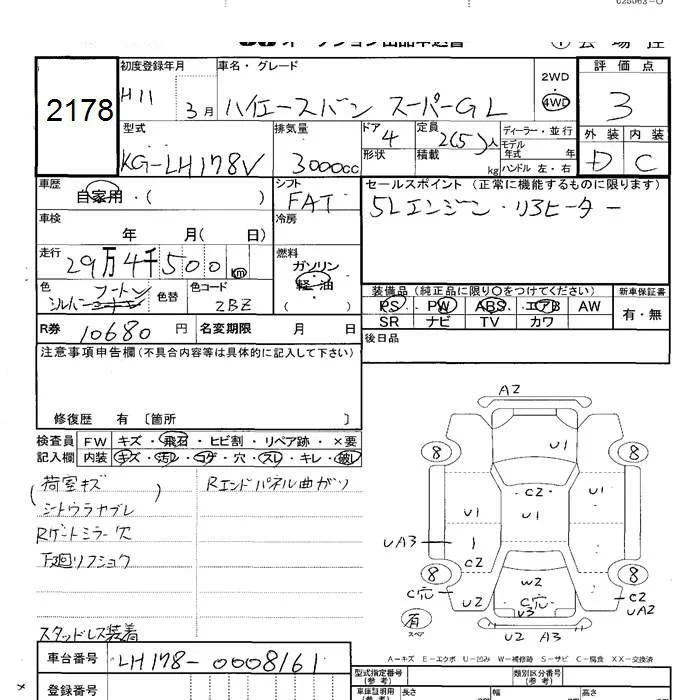 025063-0
オークション出品申込書 ① 会場控
2178
初度登録年月 H11 3月
車名・グレード ハイエースバン スーパーGL
2WD 4WD
評価点 3
外装 内装
D C
型式 KG-LH178V
排気量 3000cc
ドア 4
形状
定員 2(5)人
積載 kg
ディーラー・並行
モデル年式 年
ハンドル 左・右
車歴 自家用・( )
シフト FAT
セールスポイント (正常に機能するものに限ります)
5Lエンジン・リヤヒーター
車検 年 月( 日)
冷房
走行 29万4千500 km
燃料 ガソリン 軽・油 ( )
色 シルバー ツートン
色替
色コード 2BZ
装備品 (純正品に限り○をつけてください)
PS PW ABS エアB AW
SR ナビ TV カワ
新車保証書 有・無
R券 10680 円
名変期限 月 日
後日品
注意事項申告欄 (不具合内容等は具体的に記入して下さい)
修復歴 有 〔箇所 〕
検査員記入欄
FW キズ・飛石・ヒビ割・リペア跡・×要
内装 キズ・汚レ・コゲ・穴・スレ・キレ・破レ
(荷室キズ )
シートウラヤブレ
Rゲートミラー穴
下廻リフショク
スタッドレス装着
Rエンドパネル曲ガリ
A2
8 U1 8
C2
U1 U1 U1
UA3 1
C2
8 W2 8
C穴 U2 C穴 C2
V3 UA2
有 スペア
U2 A3
A−キズ E−エクボ U−凹み W−補修跡 S−サビ C−腐食 XX−交換済
車台番号 LH178-0008161
登録番号
型式指定番号 (参考)
類別区分番号 (参考)
車庫証明用 (参考)
長さ 幅 高さ